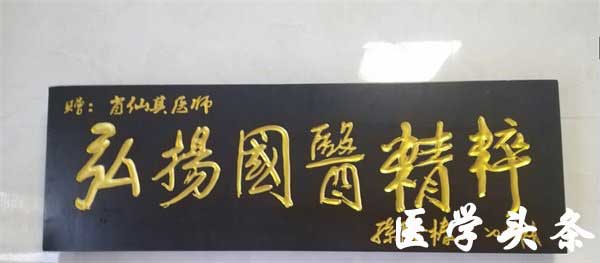 赠：肖仙其医师
弘揚國醫精粹
孫
医学头条